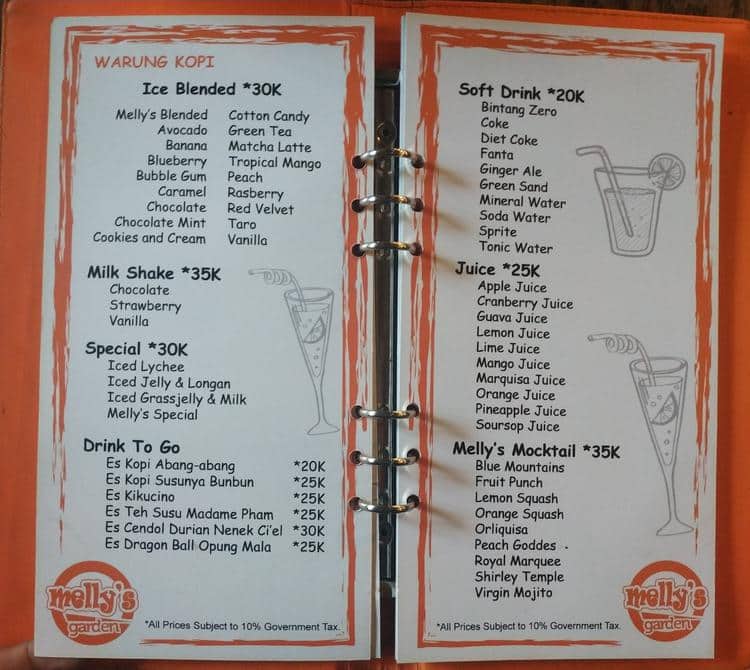 WARUNG KOPI
Ice Blended *30K
Melly's Blended Cotton Candy
Avocado Green Tea
Banana Matcha Latte
Blueberry Tropical Mango
Bubble Gum Peach
Caramel Rasberry
Chocolate Red Velvet
Chocolate Mint Taro
Cookies and Cream Vanilla
Milk Shake *35K
Chocolate
Strawberry
Vanilla
Special *30K
Iced Lychee
Iced Jelly & Longan
Iced Grassjelly & Milk
Melly's Special
Drink To Go
Es Kopi Abang-abang *20K
Es Kopi Susunya Bunbun *25K
Es Kikucino *25K
Es Teh Susu Madame Pham *25K
Es Cendol Durian Nenek Ci'el *30K
Es Dragon Ball Opung Mala *25K
melly's
garden
*All Prices Subject to 10% Government Tax.
Soft Drink *20K
Bintang Zero
Coke
Diet Coke
Fanta
Ginger Ale
Green Sand
Mineral Water
Soda Water
Sprite
Tonic Water
Juice *25K
Apple Juice
Cranberry Juice
Guava Juice
Lemon Juice
Lime Juice
Mango Juice
Marquisa Juice
Orange Juice
Pineapple Juice
Soursop Juice
Melly's Mocktail *35K
Blue Mountains
Fruit Punch
Lemon Squash
Orange Squash
Orliquisa
Peach Goddes .
Royal Marquee
Shirley Temple
Virgin Mojito
*All Prices Subject to 10% Government Tax.
melly's
garden